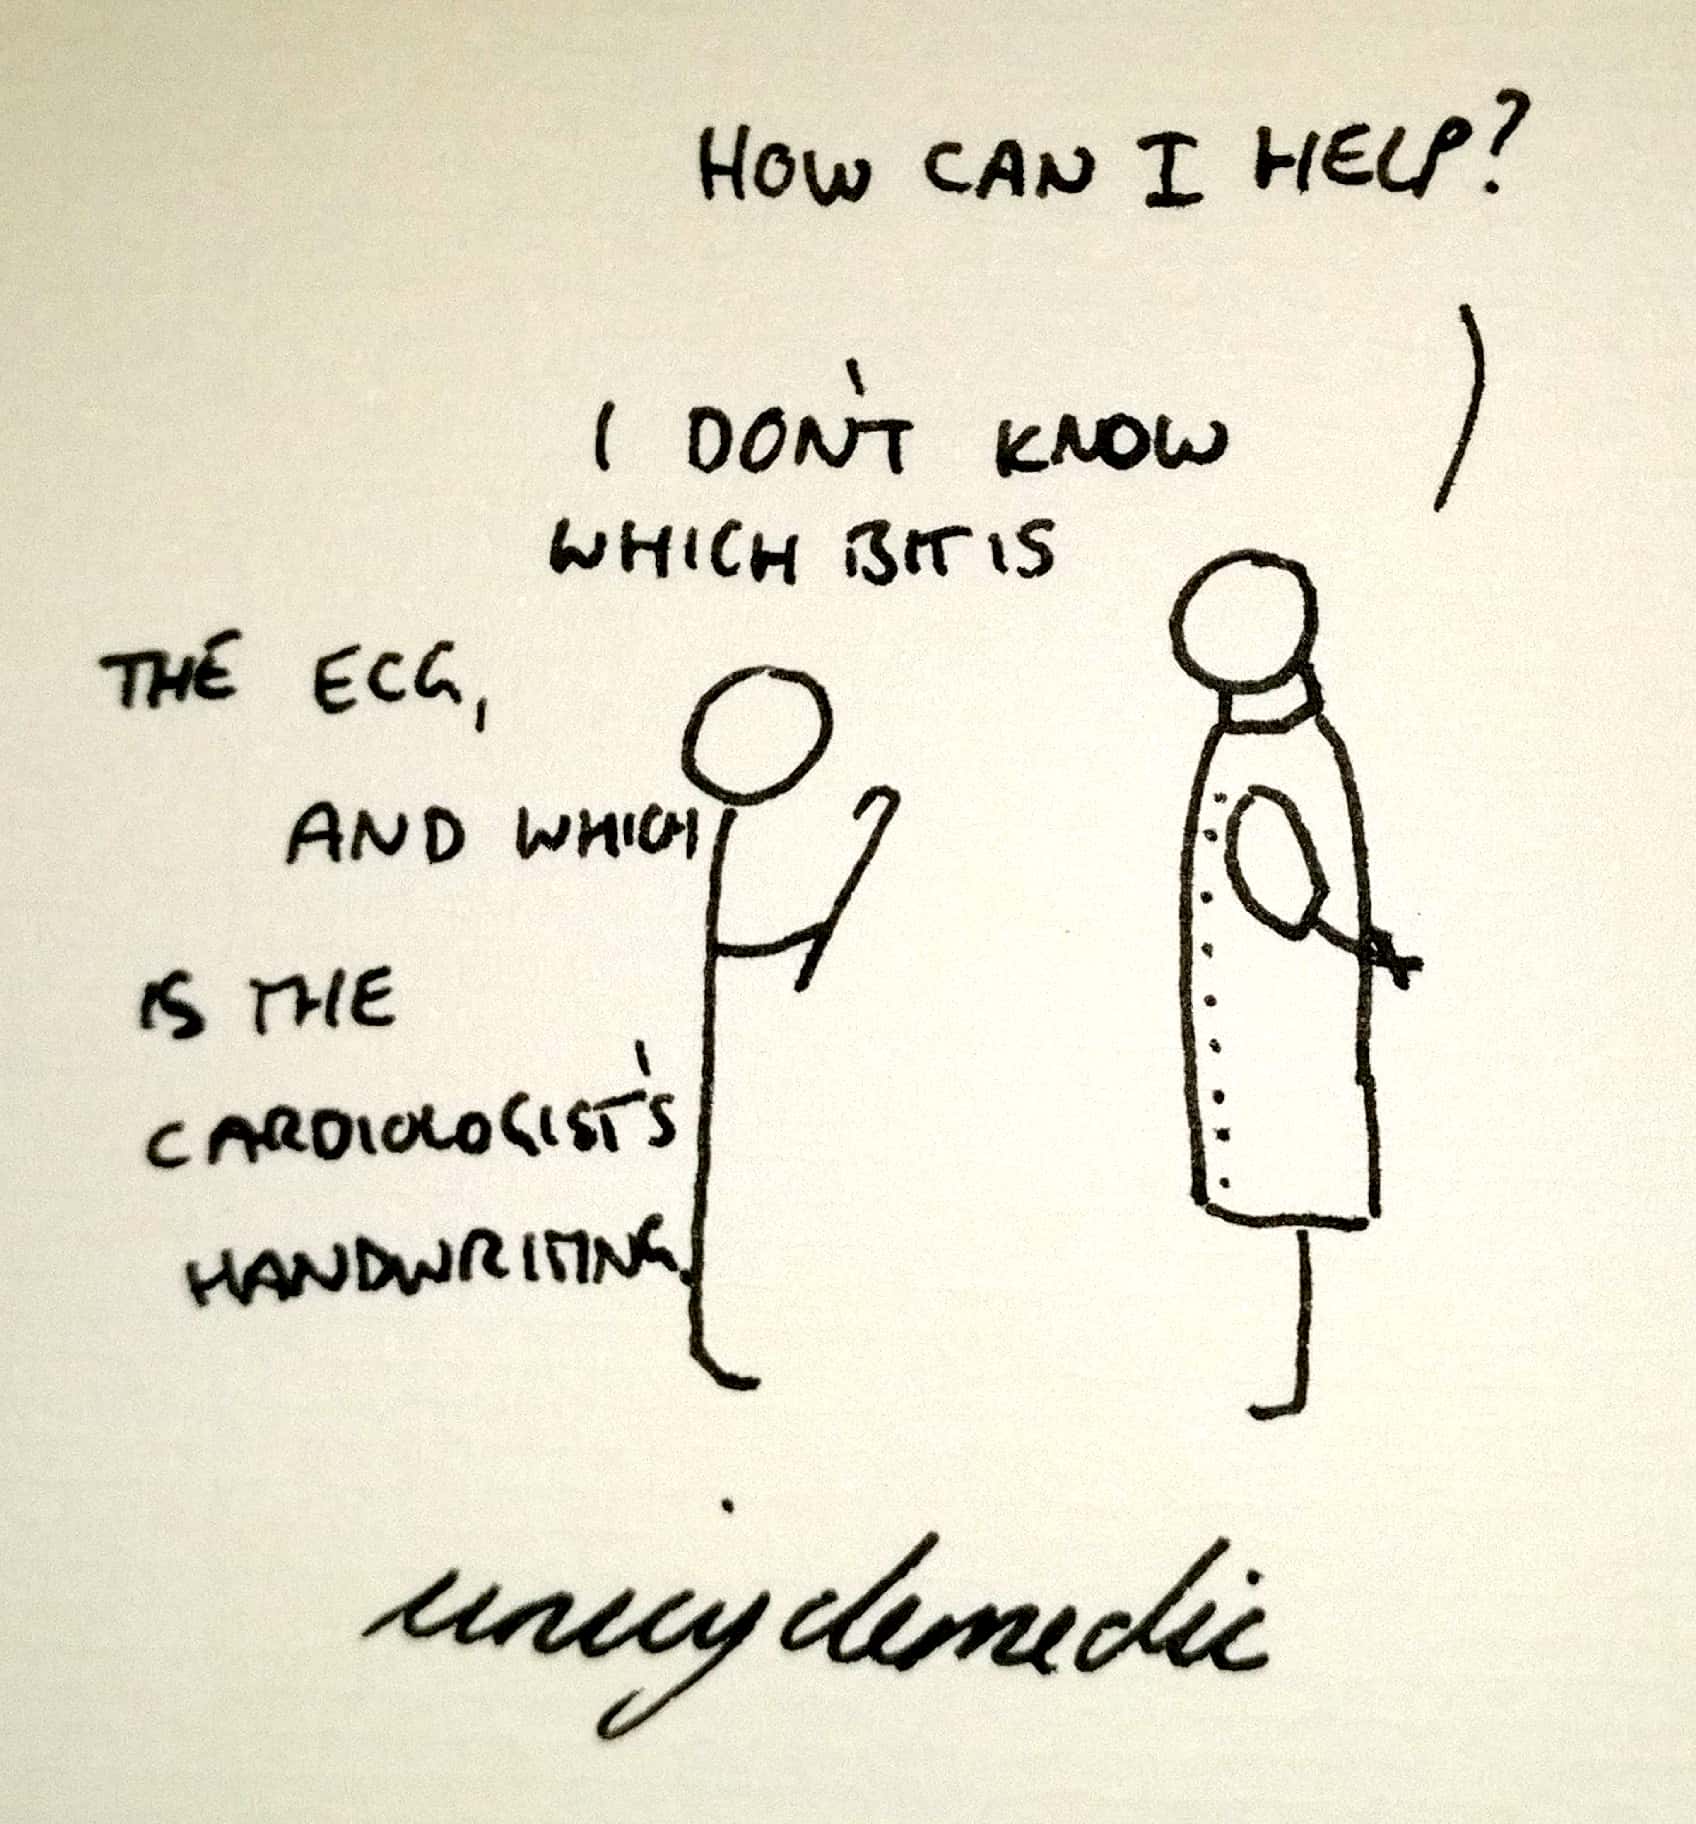 HOW CAN I HELP?
I DON'T KNOW
WHICH BIT IS
THE ECG,
AND WHICH
IS THE
CARDIOLOGIST'S
HANDWRITING.
unicyclemedic